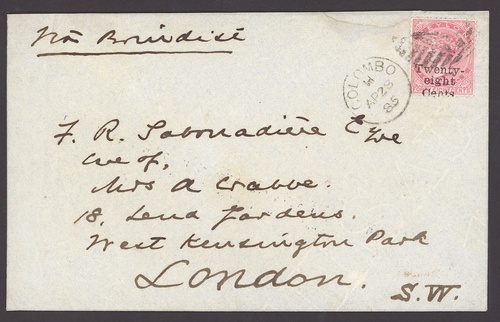 Via Brindisi
COLOMBO
H
AP 28
85
Twenty-
eight
Cents
F. R. Sabonadière Esqre
Care of,
Mrs A Crabbe.
18, Lena Gardens.
West Kensington Park
London.
S.W.